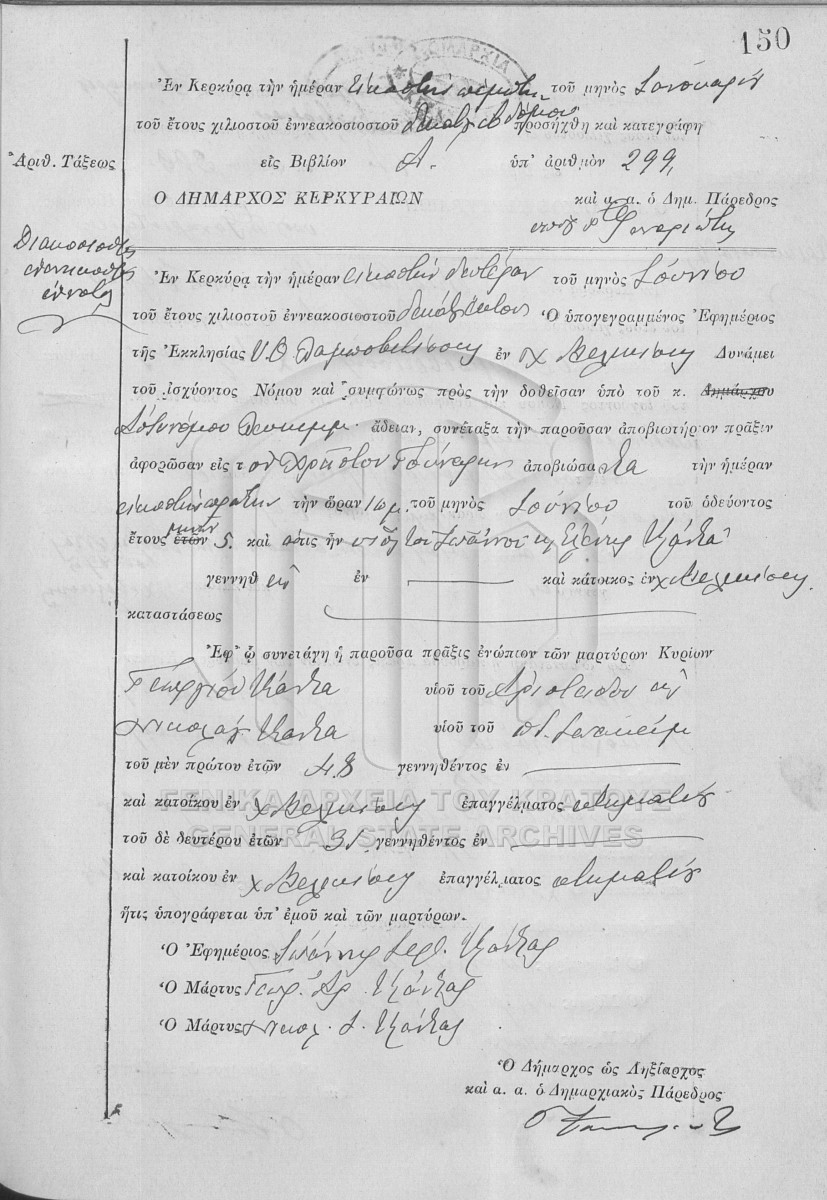 150
Ἐν Κερκύρᾳ τὴν ἡμέραν εἰκοστὴν πέμπτην τοῦ μηνὸς Ἰανουαρίου
τοῦ ἔτους χιλιοστοῦ ἐννεακοσιοστοῦ δεκάτου προσήχθη καὶ κατεγράφη
Ἀριθ. Τάξεως εἰς Βιβλίον Α. ὑπ' ἀριθμὸν 299,
Ο ΔΗΜΑΡΧΟΣ ΚΕΡΚΥΡΑΙΩΝ καὶ α. α. ὁ Δημ. Πάρεδρος
Διακοσιοστὴ
ἐνενηκοστὴ
ἐνάτη
Ἐν Κερκύρᾳ τὴν ἡμέραν εἰκοστὴν δευτέραν τοῦ μηνὸς Ἰουνίου
τοῦ ἔτους χιλιοστοῦ ἐννεακοσιοστοῦ δεκάτου Ὁ ὑπογεγραμμένος Ἐφημέριος
τῆς Ἐκκλησίας Υ. Θ. ἐν χ. Δυνάμει
τοῦ ἰσχύοντος Νόμου καὶ συμφώνως πρὸς τὴν δοθεῖσαν ὑπὸ τοῦ κ. Δημάρχου
Ἀστυνόμου Λευκίμμ. ἄδειαν, συνέταξα τὴν παροῦσαν ἀποβιωτήριον πρᾶξιν
ἀφορῶσαν εἰς τὸν Χρῆστον ἀποβιώσαντα τὴν ἡμέραν
εἰκοστὴν πρώτην τὴν ὥραν τοῦ μηνὸς Ἰουνίου τοῦ ὁδεύοντος
ἔτους ἐτῶν μηνῶν 5. καὶ ὅστις ἦν υἱὸς τοῦ Ἰωάννου κ Ἑλένης Κάντα
γεννηθεὶς ἐν καὶ κάτοικος ἐν χ.
καταστάσεως
Ἐφ' ᾧ συνετάγη ἡ παροῦσα πρᾶξις ἐνώπιον τῶν μαρτύρων Κυρίων
Γεωργίου Κάντα υἱοῦ τοῦ Ἀριστείδου
Νικολάου Κάντα υἱοῦ τοῦ Ἰωακείμ
τοῦ μὲν πρώτου ἐτῶν 48 γεννηθέντος ἐν
καὶ κατοίκου ἐν χ. ἐπαγγέλματος κτηματίου
τοῦ δὲ δευτέρου ἐτῶν 31 γεννηθέντος ἐν
καὶ κατοίκου ἐν χ. ἐπαγγέλματος κτηματίου
ἥτις ὑπογράφεται ὑπ' ἐμοῦ καὶ τῶν μαρτύρων.
Ὁ Ἐφημέριος Ἰωάννης Ἱερ. Κάντας
Ὁ Μάρτυς Γεωρ. Ἀρ. Κάντας
Ὁ Μάρτυς Νικολ. Ι. Κάντας
Ὁ Δήμαρχος ὡς Ληξίαρχος
καὶ α. α. ὁ Δημαρχιακὸς Πάρεδρος
ΓΕΝΙΚΑ ΑΡΧΕΙΑ ΤΟΥ ΚΡΑΤΟΥΣ
GENERAL STATE ARCHIVES